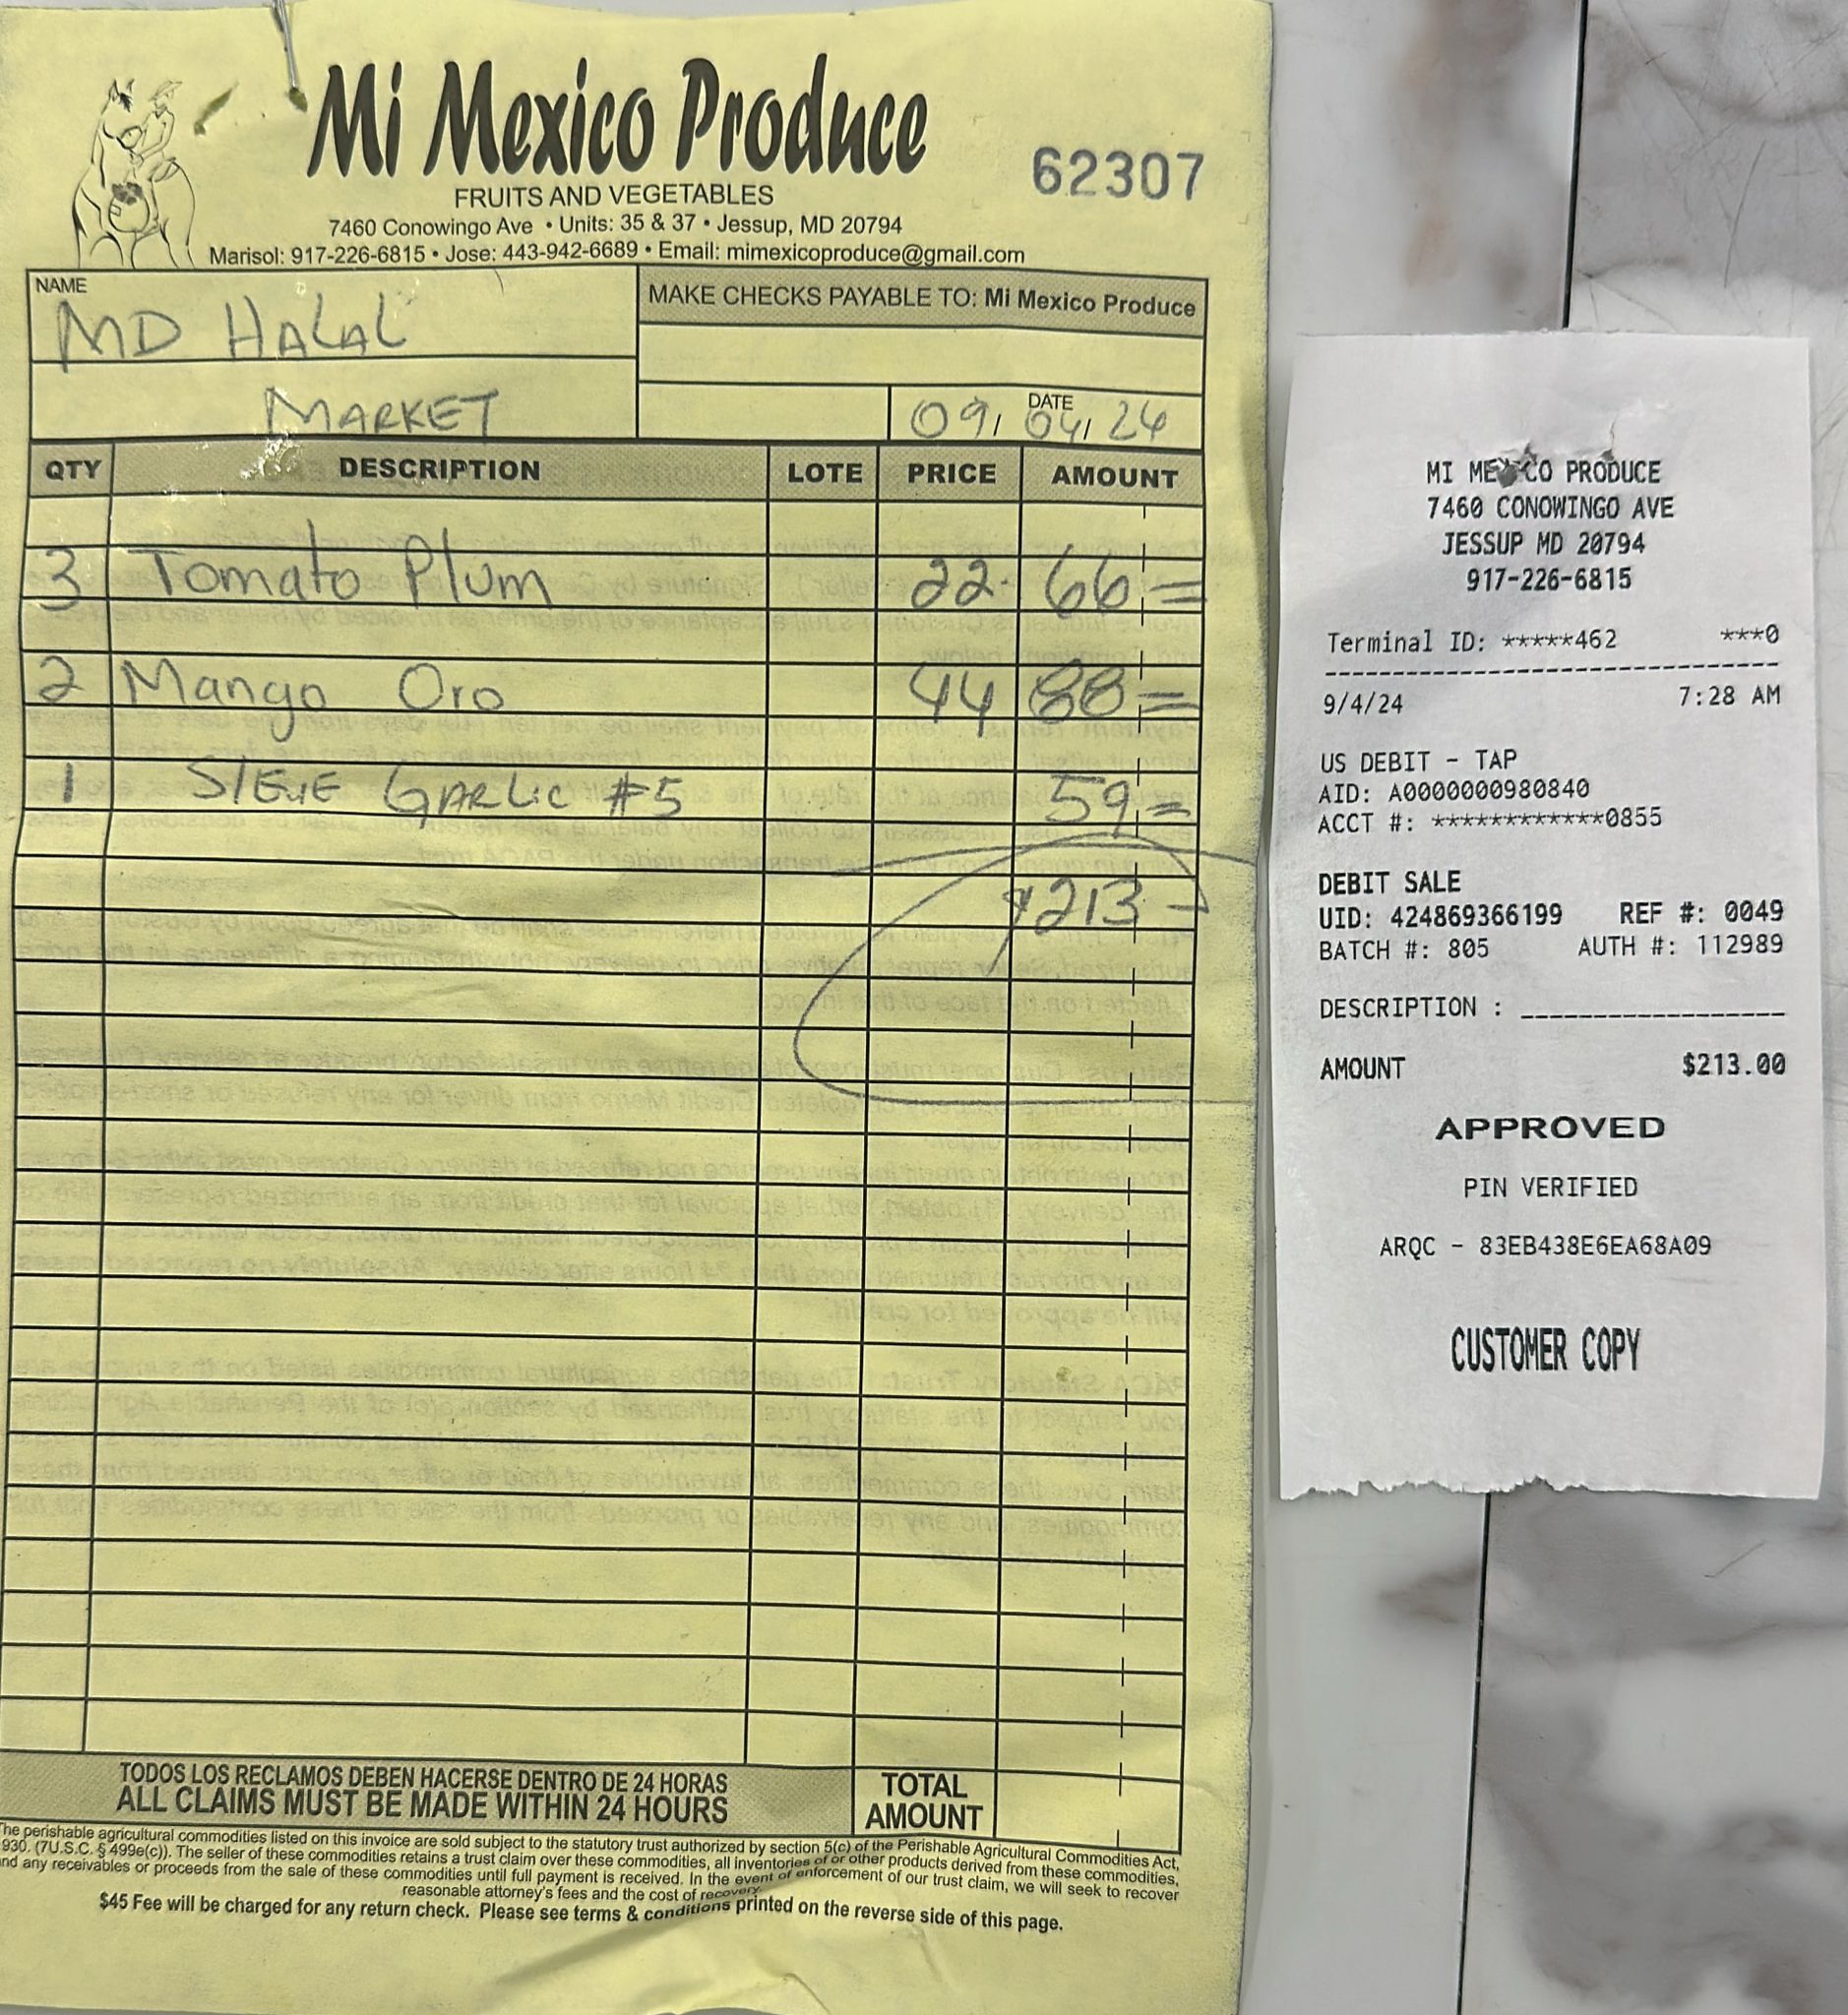 Mi Mexico Produce
62307
FRUITS AND VEGETABLES
7460 Conowingo Ave • Units: 35 & 37 • Jessup, MD 20794
Marisol: 917-226-6815 • Jose: 443-942-6689 • Email: mimexicoproduce@gmail.com
NAME
MD HALAL
MARKET
MAKE CHECKS PAYABLE TO: Mi Mexico Produce
DATE
09/04/24
QTY DESCRIPTION LOTE PRICE AMOUNT
3 Tomato Plum 22. 66=
2 Mango Oro 44 88=
1 GARLIC #5 59=
$213-
TODOS LOS RECLAMOS DEBEN HACERSE DENTRO DE 24 HORAS
ALL CLAIMS MUST BE MADE WITHIN 24 HOURS
TOTAL
AMOUNT
The perishable agricultural commodities listed on this invoice are sold subject to the statutory trust authorized by section 5(c) of the Perishable Agricultural Commodities Act,
930. (7U.S.C. § 499e(c)). The seller of these commodities retains a trust claim over these commodities, all inventories of or other products derived from these commodities,
nd any receivables or proceeds from the sale of these commodities until full payment is received. In the event of enforcement of our trust claim, we will seek to recover
reasonable attorney's fees and the cost of recovery.
$45 Fee will be charged for any return check. Please see terms & conditions printed on the reverse side of this page.
MI MEXICO PRODUCE
7460 CONOWINGO AVE
JESSUP MD 20794
917-226-6815
Terminal ID: *****462 ***0
9/4/24 7:28 AM
US DEBIT - TAP
AID: A0000000980840
ACCT #: ************0855
DEBIT SALE
UID: 424869366199 REF #: 0049
BATCH #: 805 AUTH #: 112989
DESCRIPTION :
AMOUNT $213.00
APPROVED
PIN VERIFIED
ARQC - 83EB438E6EA68A09
CUSTOMER COPY